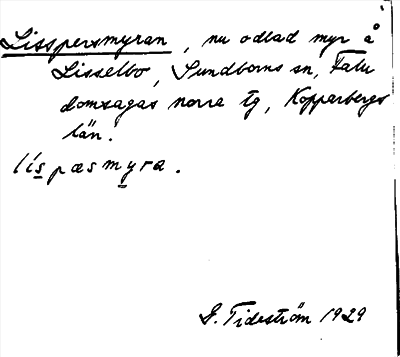 Lisspersmyran, nu odlad myr å
Lisselbo, Sundborns sn, Falu
domsagas norra tg, Kopparbergs
län.
líspæsmyra.
G. Tideström 1929